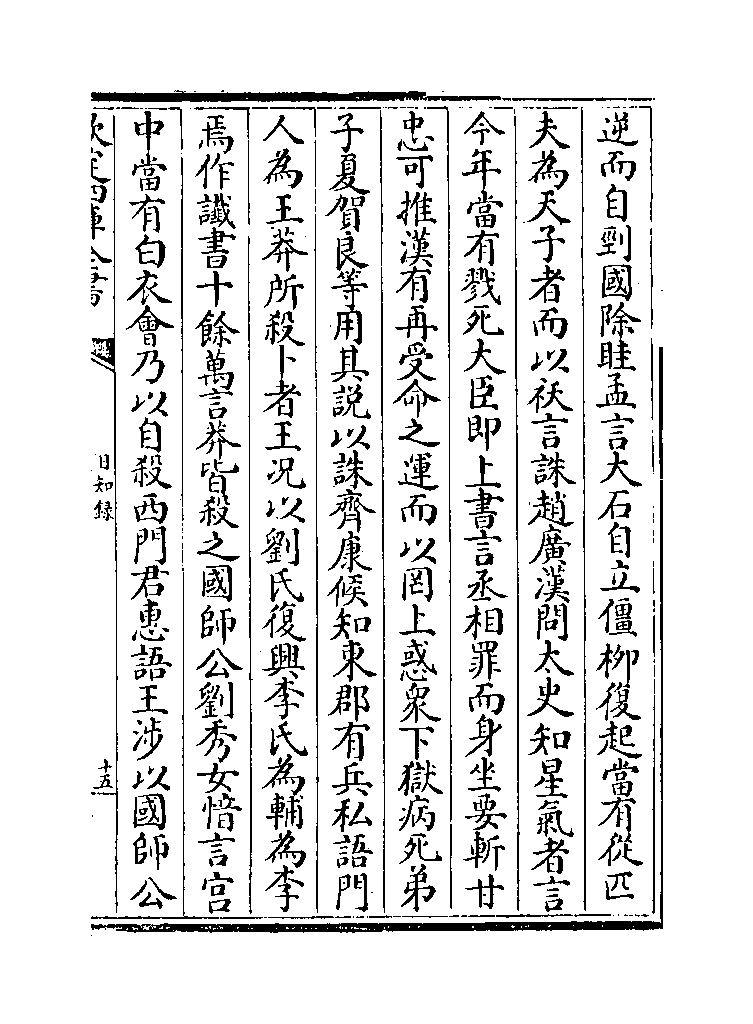 逆而自剄國除眭孟言大石自立僵柳復起當有從匹
夫為天子者而以祅言誅趙廣漢問太史知星氣者言
今年當有戮死大臣即上書言丞相罪而身坐要斬甘
忠可推漢有再受命之運而以罔上惑衆下獄病死弟
子夏賀良等用其説以誅齊康候知東郡有兵私語門
人為王莽所殺卜者王况以劉氏復興李氏為輔為李
焉作讖書十餘萬言莽皆殺之國師公劉秀女愔言宫
中當有白衣會乃以自殺西門君惠語王涉以國師公
欽定四庫全書
日知録
十五